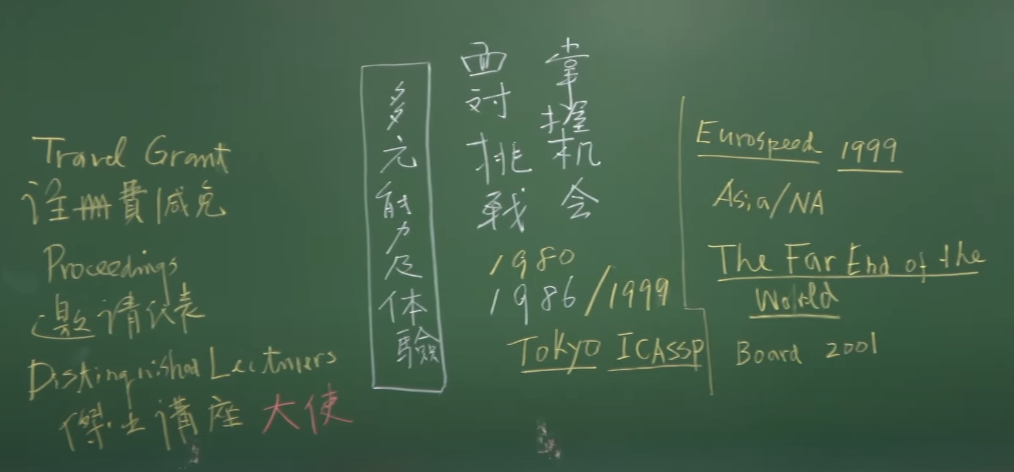 Travel Grant
註冊費減免
Proceedings
邀請代表
Distinguished Lecturers
傑出講座 大使
多元能力及体驗
掌握机会
面対挑戦
1980
1986/1999
Tokyo ICASSP
Eurospeed 1999
Asia/NA
The Far End of the
World
Board 2001